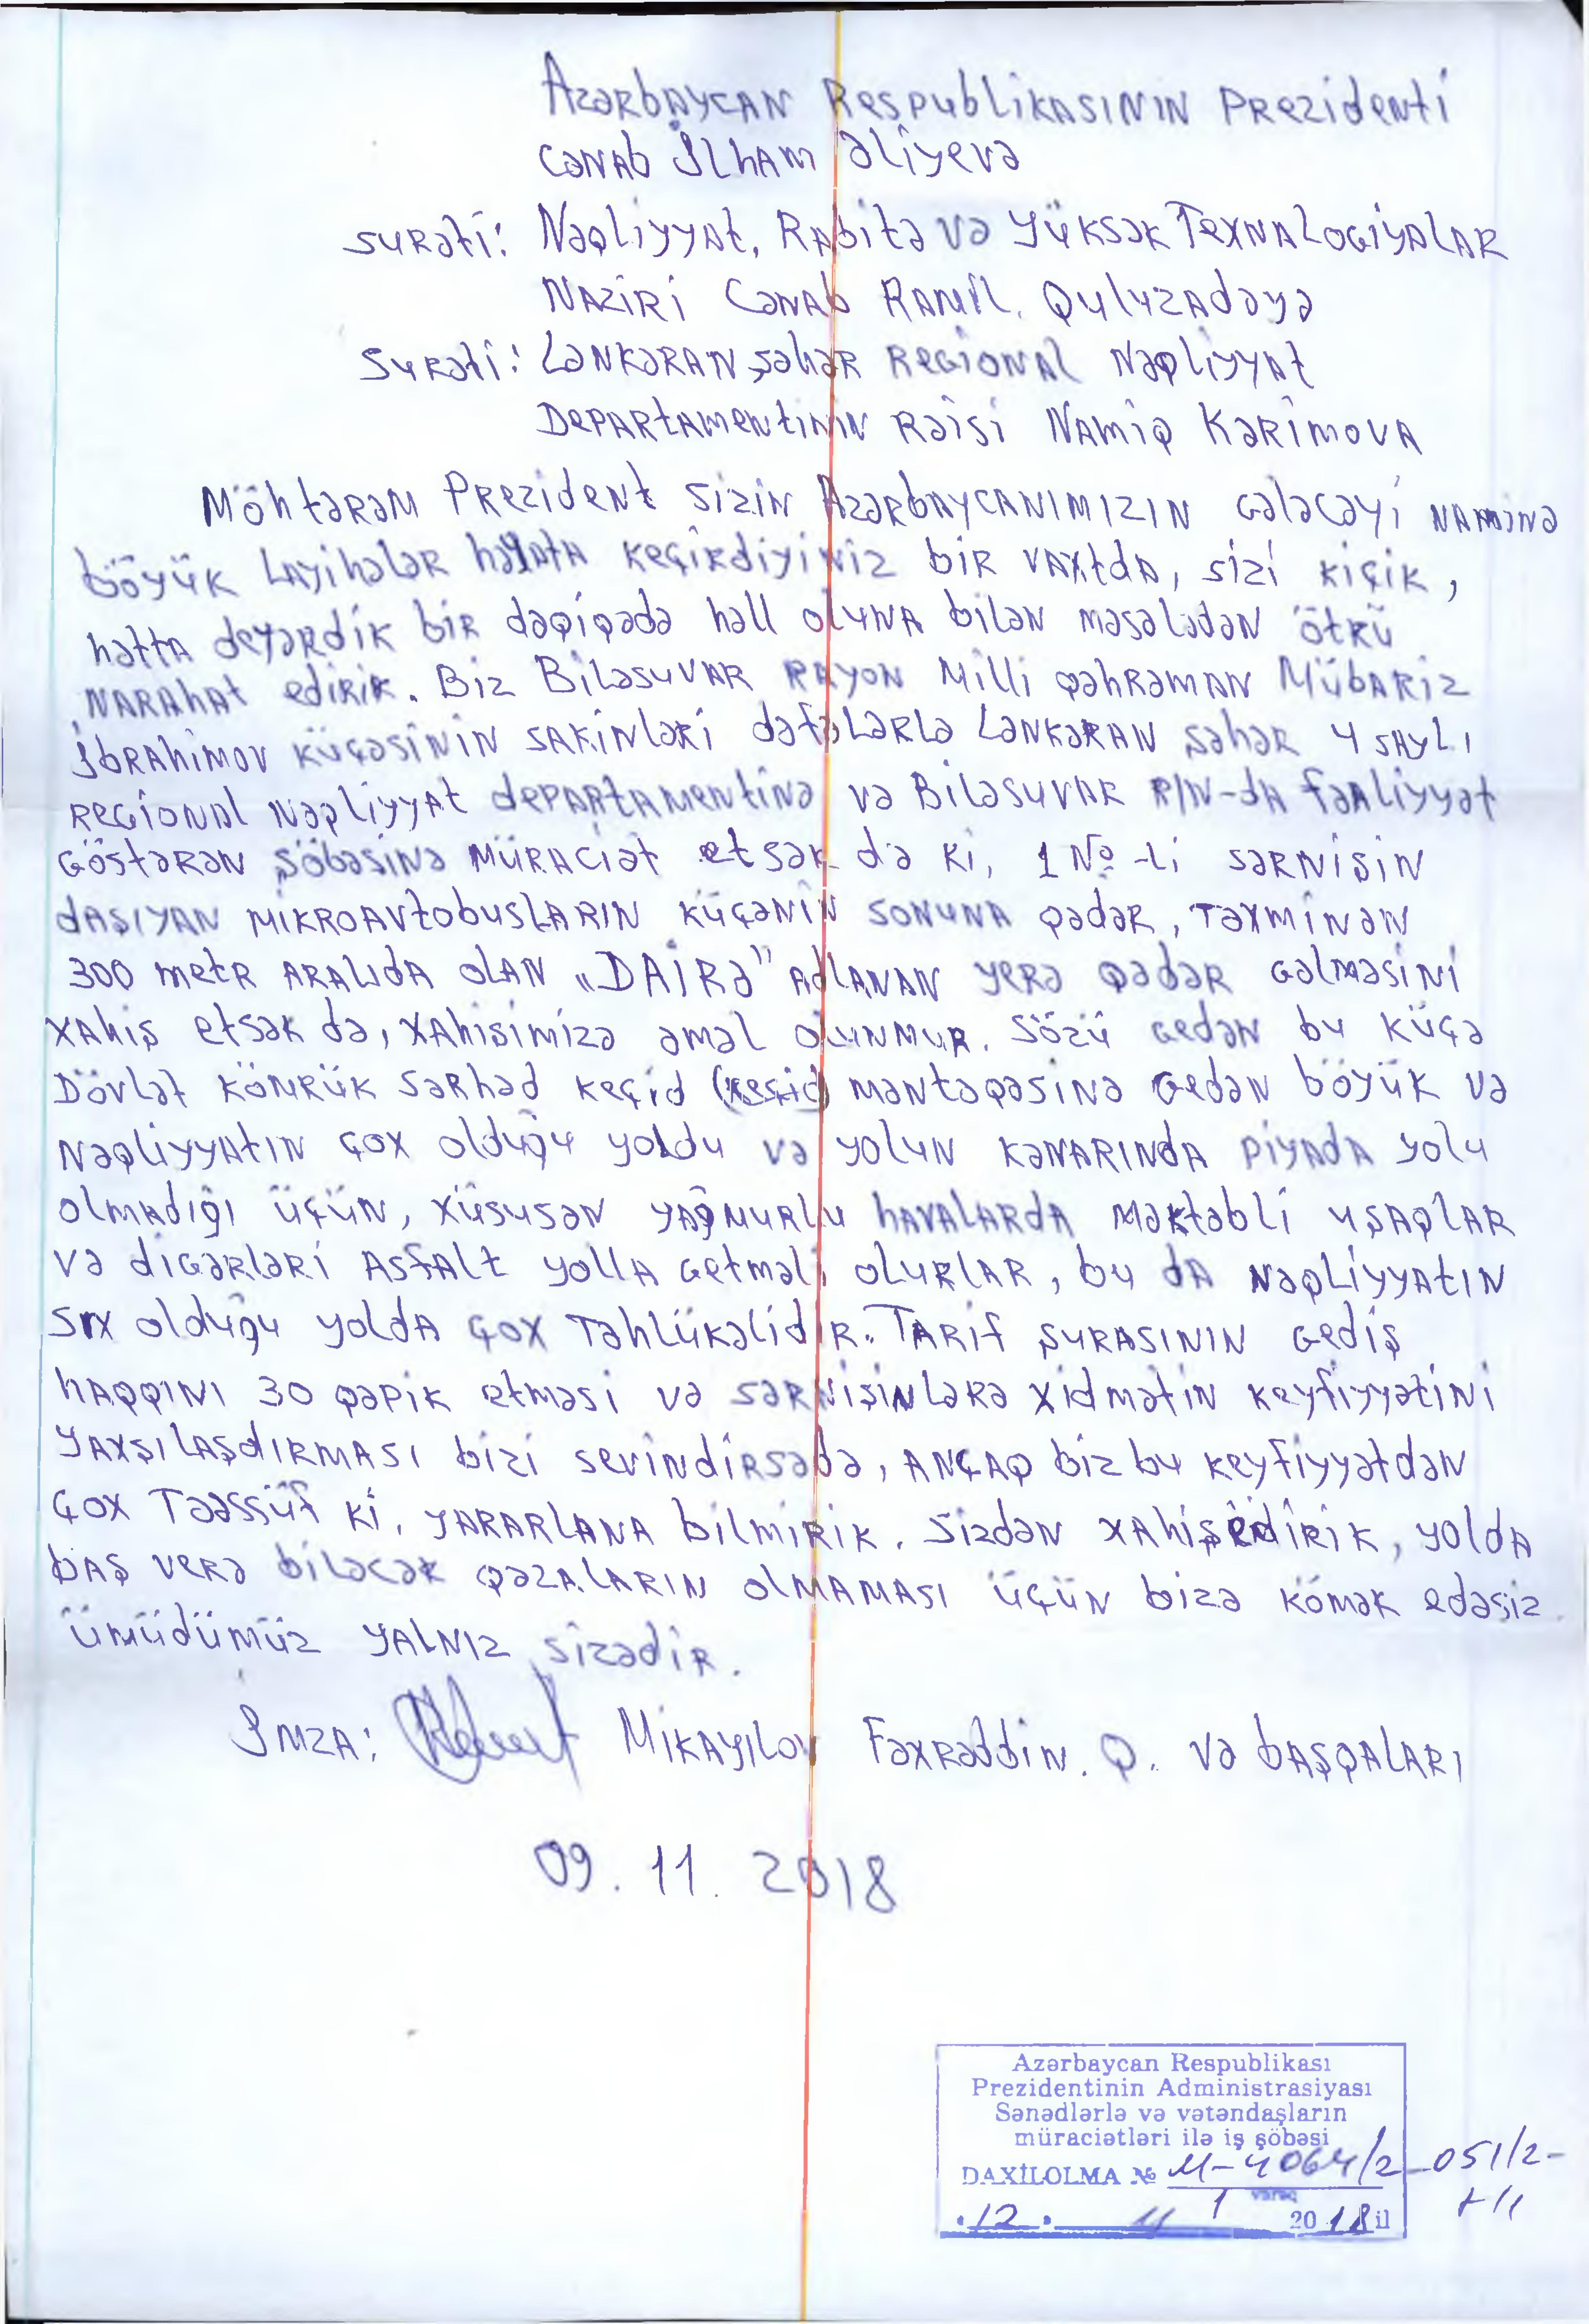 Azərbaycan Respublikasının Prezidenti
Cənab İlham Əliyevə
surəti: Nəqliyyat, Rabitə və Yüksək Texnalogiyalar
Naziri Cənab Ramil. Quluzadəyə
Surəti: Lənkəran şəhər Regional Nəqliyyat
Departamentinin Rəisi Namiq Kərimova
Möhtərəm Prezident sizin Azərbaycanımızın gələcəyi naminə
böyük layihələr həyata keçirdiyiniz bir vaxtda, sizi kiçik,
hətta deyərdik bir dəqiqədə həll oluna bilən məsələdən ötrü
narahat edirik. Biz Biləsuvar rayon Milli qəhrəman Mübariz
İbrahimov küçəsinin sakinləri dəfələrlə Lənkəran şəhər 4 saylı
Regional Nəqliyyat departamentinə və Biləsuvar R/N-da fəaliyyət
göstərən şöbəsinə müraciət etsək də ki, 1 №-li sərnişin
daşıyan mikroavtobusların küçənin sonuna qədər, təxminən
300 metr aralıda olan „Dairə” adlanan yerə qədər gəlməsini
xahiş etsək də, xahişimizə əməl olunmur. Sözü gedən bu küçə
Dövlət kömrük sərhəd keçid məntəqəsinə gedən böyük və
nəqliyyatın çox olduğu yoldu və yolun kənarında piyada yolu
olmadığı üçün, xüsusən yağmurlu havalarda məktəbli uşaqlar
və digərləri asfalt yolla getməli olurlar, bu da nəqliyyatın
sıx olduğu yolda çox təhlükəlidir. Tarif şurasının gediş
haqqını 30 qəpik etməsi və sərnişinlərə xidmətin keyfiyyətini
yaxşılaşdırması bizi sevindirsədə, ançaq biz bu keyfiyyətdən
çox təəssüf ki, yararlana bilmirik. Sizdən xahiş edirik, yolda
baş verə biləcək qəzaların olmaması üçün bizə kömək edəsiz
ümüdümüz yalnız sizədir.
İmza: Mikayılov Fəxrəddin. Q. və başqaları
09. 11. 2018
Azərbaycan Respublikası
Prezidentinin Administrasiyası
Sənədlərlə və vətəndaşların
müraciətləri ilə iş şöbəsi
DAXİLOLMA № M-4064/2-051/2-
1 vərəq
12. 11 2018 il